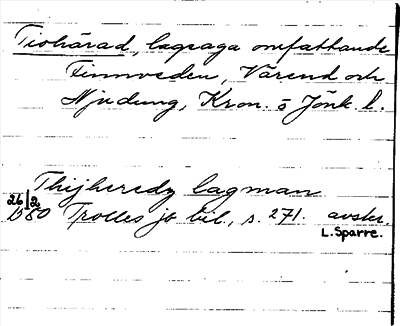 Tiohärad, lagsaga omfattande
Finnveden, Värend och
Njudung, Kron. o Jönk. l.
Thijheredz lagman
26/2
1580 Trolles jb bil., s. 271. avskr.
L. Sparre.